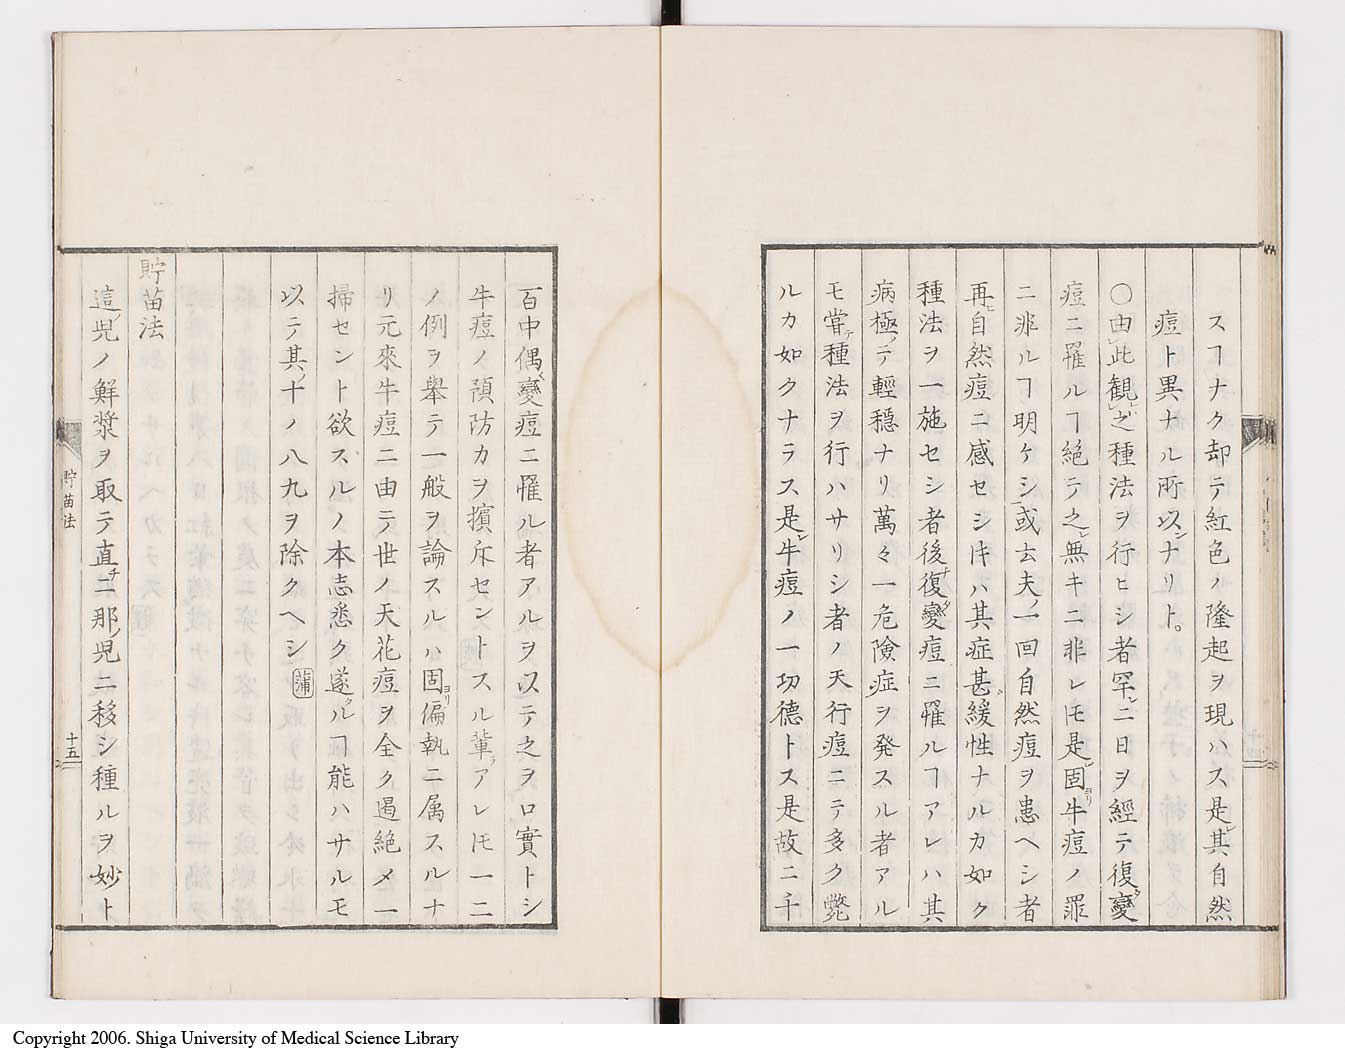 スヿナク却テ紅色ノ隆起ヲ現ハス是レ其自然
痘ト異ナル所以ンナリト。
〇由レ此観レ之ヒ種法ヲ行ヒシ者罕レニ日ヲ經テ復タ變
痘ニ罹ルヿ絶テ之レ無キニ非レ𪜈是レ固ヨリ牛痘ノ罪
ニ非ルヿ明ケシ或云夫ノ一回自然痘ヲ患ヘシ者
再ヒ自然痘ニ感セシ𪜈ハ其症甚タ緩性ナルカ如ク
種法ヲ一施セシ者後チ復タ變痘ニ罹ルヿアレハ其
病極メテ輕穏ナリ萬々一危險症ヲ発スル者アル
モ嘗テ種法ヲ行ハサリシ者ノ天行痘ニテ多ク斃
ルカ如クナラス是レ牛痘ノ一功德トス是故ニ千
百中偶々變痘ニ罹ル者アルヲ以テ之ヲ口實トシ
牛痘ノ預防カヲ擯斥セントスル輩ラアレ𪜈一二
ノ例ヲ舉テ一般ヲ論スルハ固ヨリ偏執ニ属スルナ
リ元來牛痘ニ由テ世ノ天花痘ヲ全ク遏絶メ一
掃セント欲スルノ本志悉ク遂クルヿ能ハサルモ
以テ其ノ十ノ八九ヲ除クヘシ 蒲
貯苗法
這ノ児ノ鮮漿ヲ取テ直チニ那ノ児ニ移シ種ルヲ妙ト
貯苗法
十五
Copyright 2006. Shiga University of Medical Science Library